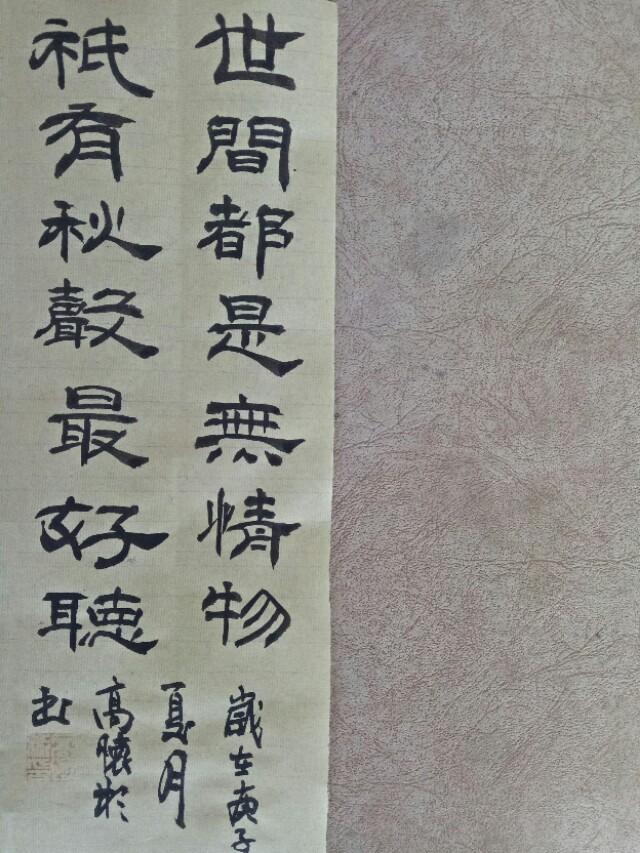 世間都是無情物
祇有秋聲最好聽
歲在庚子
夏月
高懷彬
書